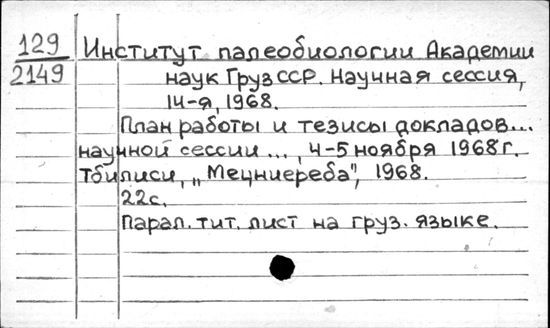 129 Институт палеобиологии Академии
2149 наук Груз ССР. Научная сессия,
14-я, 1968.
План работы и тезисы докладов...
научной сессии ..., 4-5 ноября 1968 г.
Тбилиси, „Мецниереба", 1968.
22 с.
Парал. тит. лист на груз. языке.